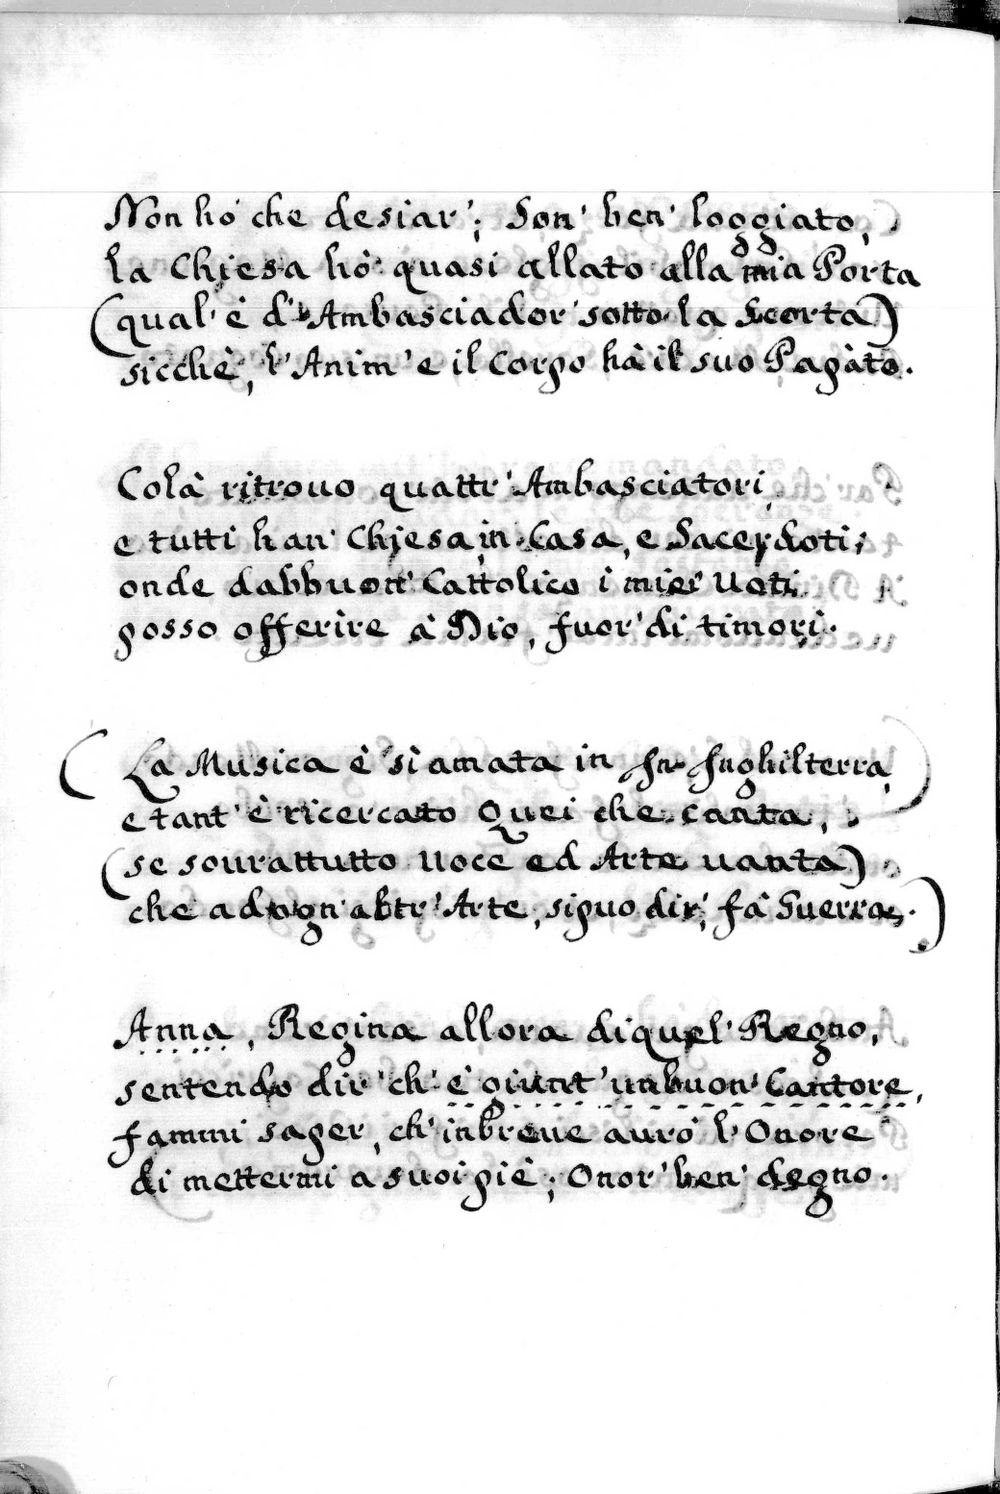 Non hò che desiar'; Son' ben' loggiato,
la Chiesa hò quasi allato alla mia Porta
(qual' è d'Ambasciador sotto la Scorta)
sicchè, l'Anim' e il Corpo hà il suo Pagàto.
Colà ritrouo quattr' Ambasciatori,
e tutti han' Chiesa in Casa, e Sacerdoti;
onde dabbuon' Cattolico i miei Uoti
posso offerire à Dio, fuor' di timori.
(La Musica è sì amata in Inghilterra,
e tant' è ricercato Quei che canta,
(se sourattutto uoce ed Arte uanta)
che ad ogn' altr' Arte, si puo dir, fà Guerra.)
Anna, Regina allora di quel' Regno,
sentendo dir' ch' è giunt' un buon' Cantore,
fammi saper, ch' in breue aurò l'Onore
di mettermi a suoi piè; Onor' ben' degno.